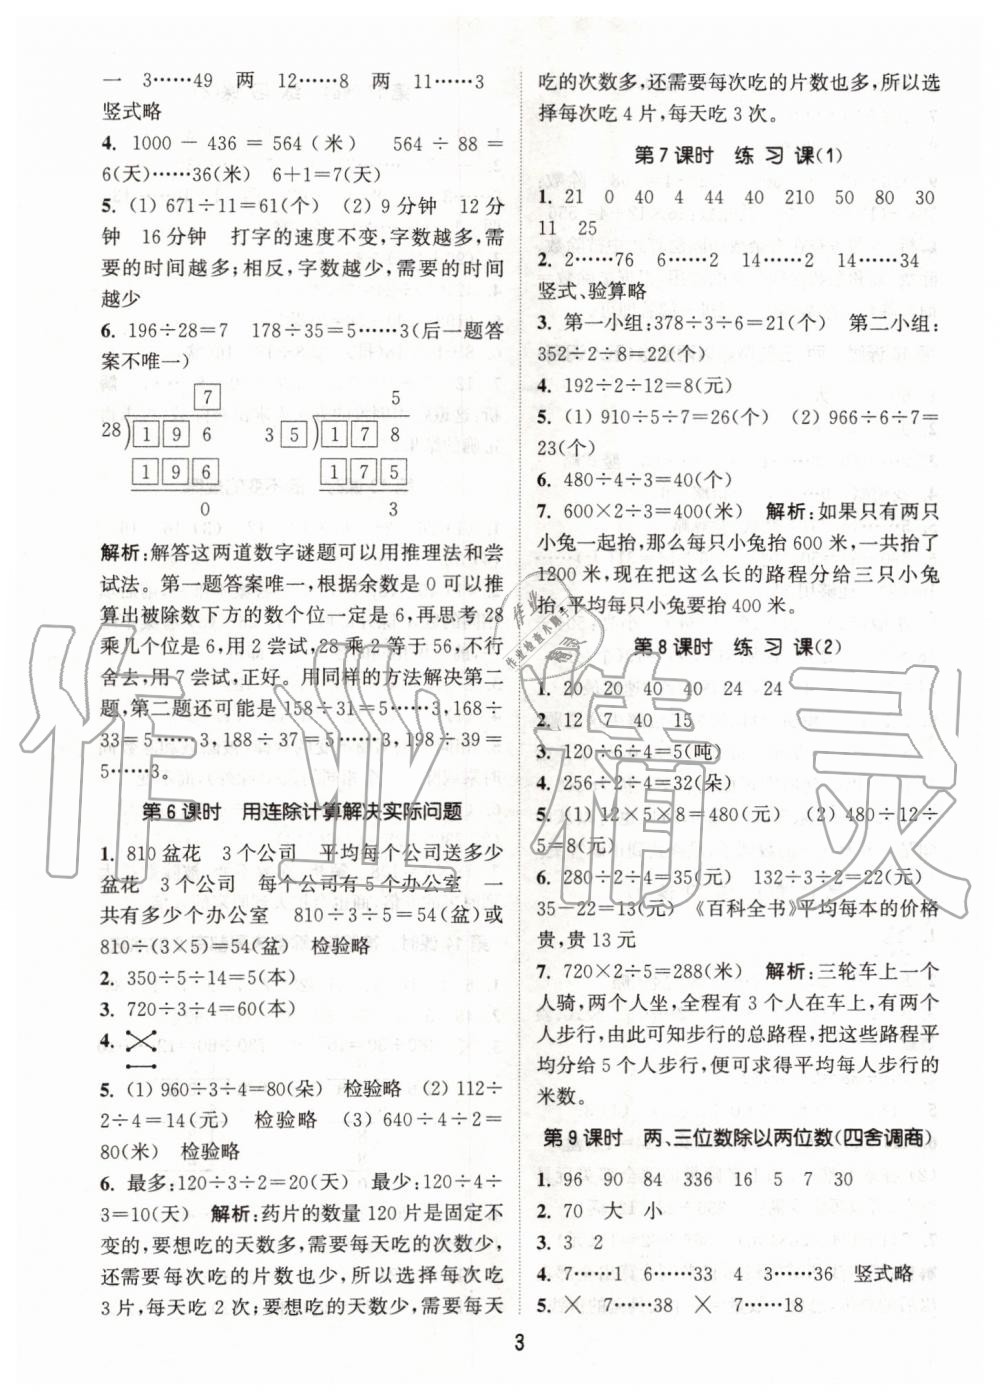 一　3……49　两　12……8　两　11……3
竖式略
4. 1000－436＝564(米)　564÷88＝
6(天)……36(米)　6＋1＝7(天)
5. (1) 671÷11＝61(个)　(2) 9分钟　12分
钟　16分钟　打字的速度不变,字数越多,需
要的时间越多;相反,字数越少,需要的时间
越少
6. 196÷28＝7　178÷35＝5……3(后一题答
案不唯一)
7　5
28 196　35 178
196　175
0　3
解析:解答这两道数字谜题可以用推理法和尝
试法。第一题答案唯一,根据余数是0可以推
算出被除数下方的数个位一定是6,再思考28
乘几个位是6,用2尝试,28乘2等于56,不行
舍去,用7尝试,正好。用同样的方法解决第二
题,第二题还可能是158÷31＝5……3,168÷
33＝5……3,188÷37＝5……3,198÷39＝
5……3。
第6课时　用连除计算解决实际问题
1. 810盆花　3个公司　平均每个公司送多少
盆花　3个公司　每个公司有5个办公室　一
共有多少个办公室　810÷3÷5＝54(盆)或
810÷(3×5)＝54(盆)　检验略
2. 350÷5÷14＝5(本)
3. 720÷3÷4＝60(本)
4.
5. (1) 960÷3÷4＝80(朵)　检验略　(2) 112÷
2÷4＝14(元)　检验略　(3) 640÷4÷2＝
80(米)　检验略
6. 最多:120÷3÷2＝20(天)　最少:120÷4÷
3＝10(天)　解析:药片的数量120片是固定不
变的,要想吃的天数多,需要每天吃的次数少,
还需要每次吃的片数也少,所以选择每次吃
3片,每天吃2次;要想吃的天数少,需要每天
吃的次数多,还需要每次吃的片数也多,所以选
择每次吃4片,每天吃3次。
第7课时　练习课(1)
1. 21　0　40　4　44　40　210　50　80　30
11　25
2. 2……76　6……2　14……2　14……34
竖式、验算略
3. 第一小组:378÷3÷6＝21(个)　第二小组:
352÷2÷8＝22(个)
4. 192÷2÷12＝8(元)
5. (1) 910÷5÷7＝26(个)　(2) 966÷6÷7＝
23(个)
6. 480÷4÷3＝40(个)
7. 600×2÷3＝400(米)　解析:如果只有两只
小兔一起抬,那么每只小兔抬600米,一共抬了
1200米,现在把这么长的路程分给三只小兔
抬,平均每只小兔要抬400米。
第8课时　练习课(2)
1. 20　20　40　40　24　24
2. 12　7　40　15
3. 120÷6÷4＝5(吨)
4. 256÷2÷4＝32(朵)
5. (1) 12×5×8＝480(元)　(2) 480÷12÷
5＝8(元)
6. 280÷2÷4＝35(元)　132÷3÷2＝22(元)
35－22＝13(元)　《百科全书》平均每本的价格
贵,贵13元
7. 720×2÷5＝288(米)　解析:三轮车上一个
人骑,两个人坐,全程有3个人在车上,有两个
人步行,由此可知步行的总路程,把这些路程平
均分给5个人步行,便可求得平均每人步行的
米数。
第9课时　两、三位数除以两位数(四舍调商)
1. 96　90　84　336　16　5　7　30
2. 70　大　小
3. 3　2
4. 7……1　6……33　4　3……36　竖式略
5. ×　7……38　×　7……18
3
作业精灵